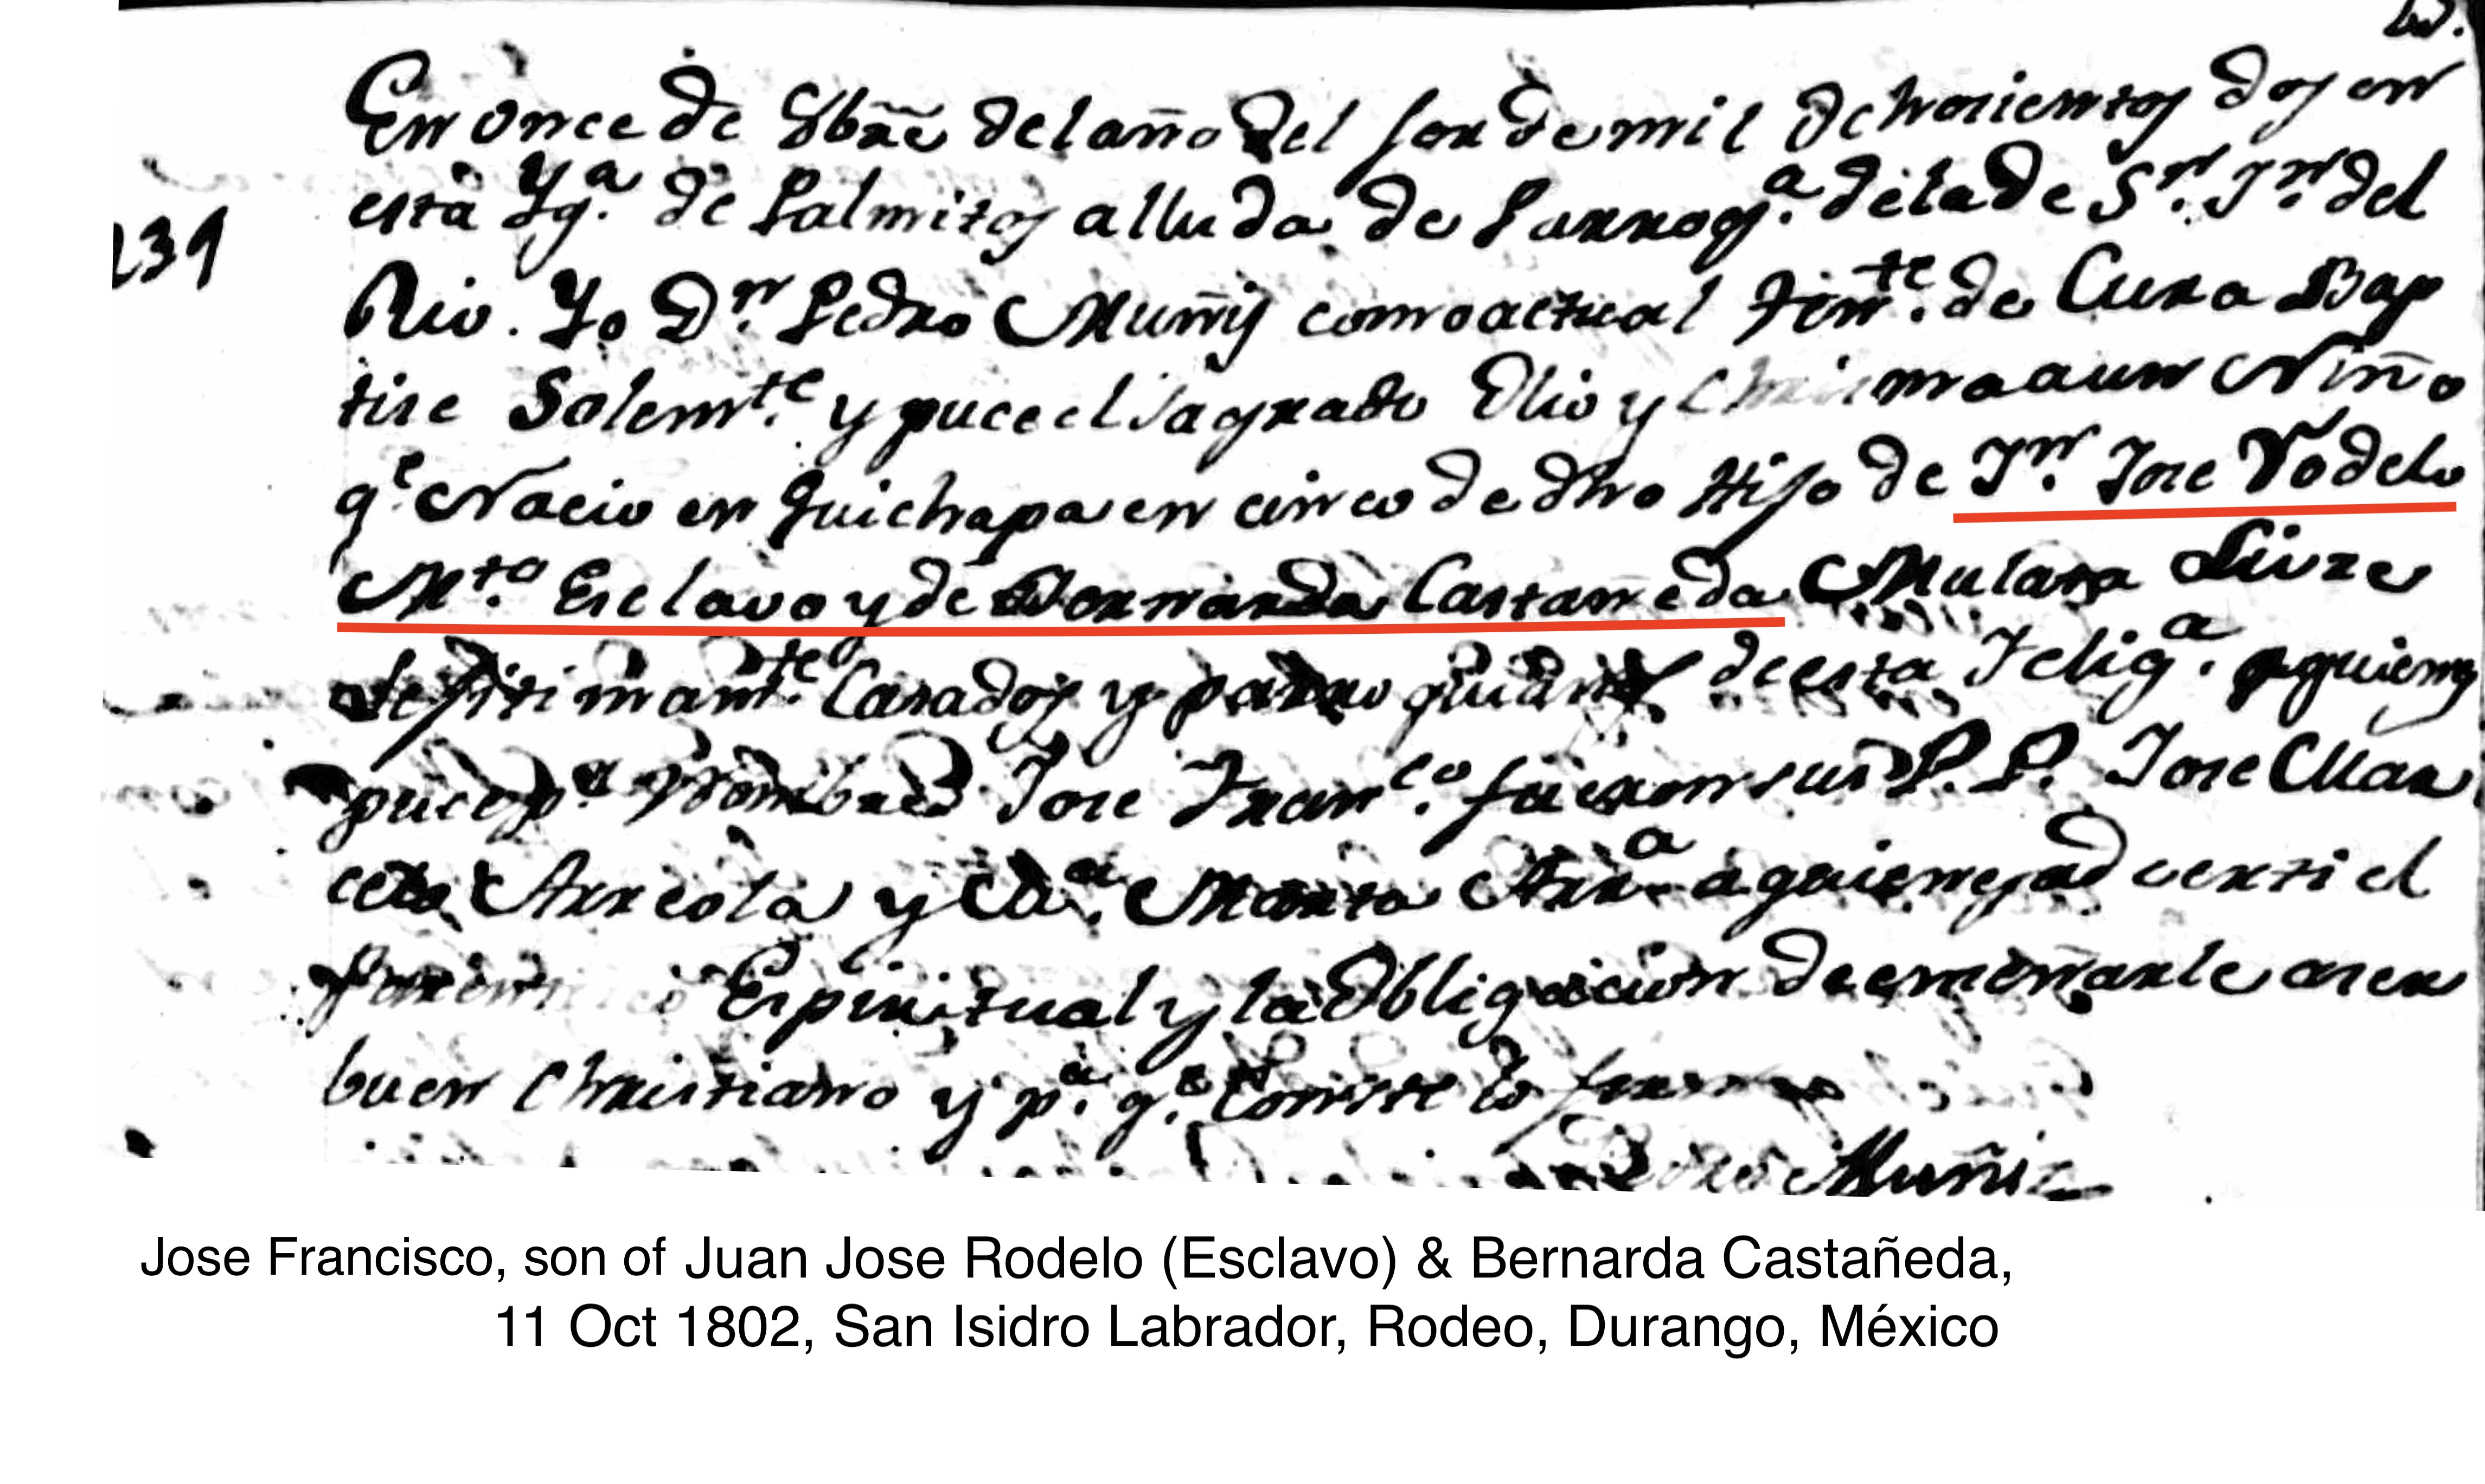 En once de 8bre del año del Sor de mil Ochocientos dos en
esta Yga. de Palmitos alluda de Parroqa. de la de Sn. Jn. del
139
Rio. Yo Dn. Pedro Muñis como actual Tente. de Cura Bap
tise Solemte. y puce el Sagrado Olio y Chrisma a un Niño
qe. Nacio en Guichapa en cinco de dho Hijo de Jn. Jose Rodelo
Mto. Esclavo y de Bernarda Castañeda Mulata Livre
Lejitimamte. Casados y parroquianos de esta Feliga. a quienes
puce pr. Nombre Jose Franco. fueron sus P. P. Jose Mar
Arreola y Da. a quienes adverti el
Espiritual y la Obligacion de enseñarle a ser
buen Christiano y pa. qe. Conste lo firme
Muñis
Jose Francisco, son of Juan Jose Rodelo (Esclavo) & Bernarda Castañeda,
11 Oct 1802, San Isidro Labrador, Rodeo, Durango, México